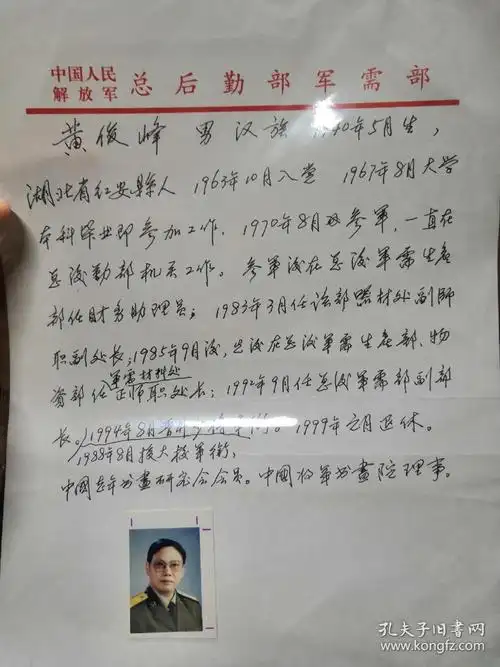 中国人民
解放军 总后勤部军需部
黄俊峰 男 汉族 1940年5月生，
湖北省红安縣人 1963年10月入党 1967年8月大学
本科毕业即参加工作，1970年8月 参军，一直在
总后勤部机关工作。参军后在总后军需生产
部任财务助理员；1983年3月任该部器材处副师
职副处长；1985年9月后，总后军需生产部，物
资部任军需材料处正师职处长；1992年9月任总后军需部副部
长。1994年8月晋升少将军衔。1999年 月退休。
1988年8月授大校军衔，
中国老年书畫研究会会员。中國将军书畫院理事。
孔夫子旧书网
www.kongfz.com